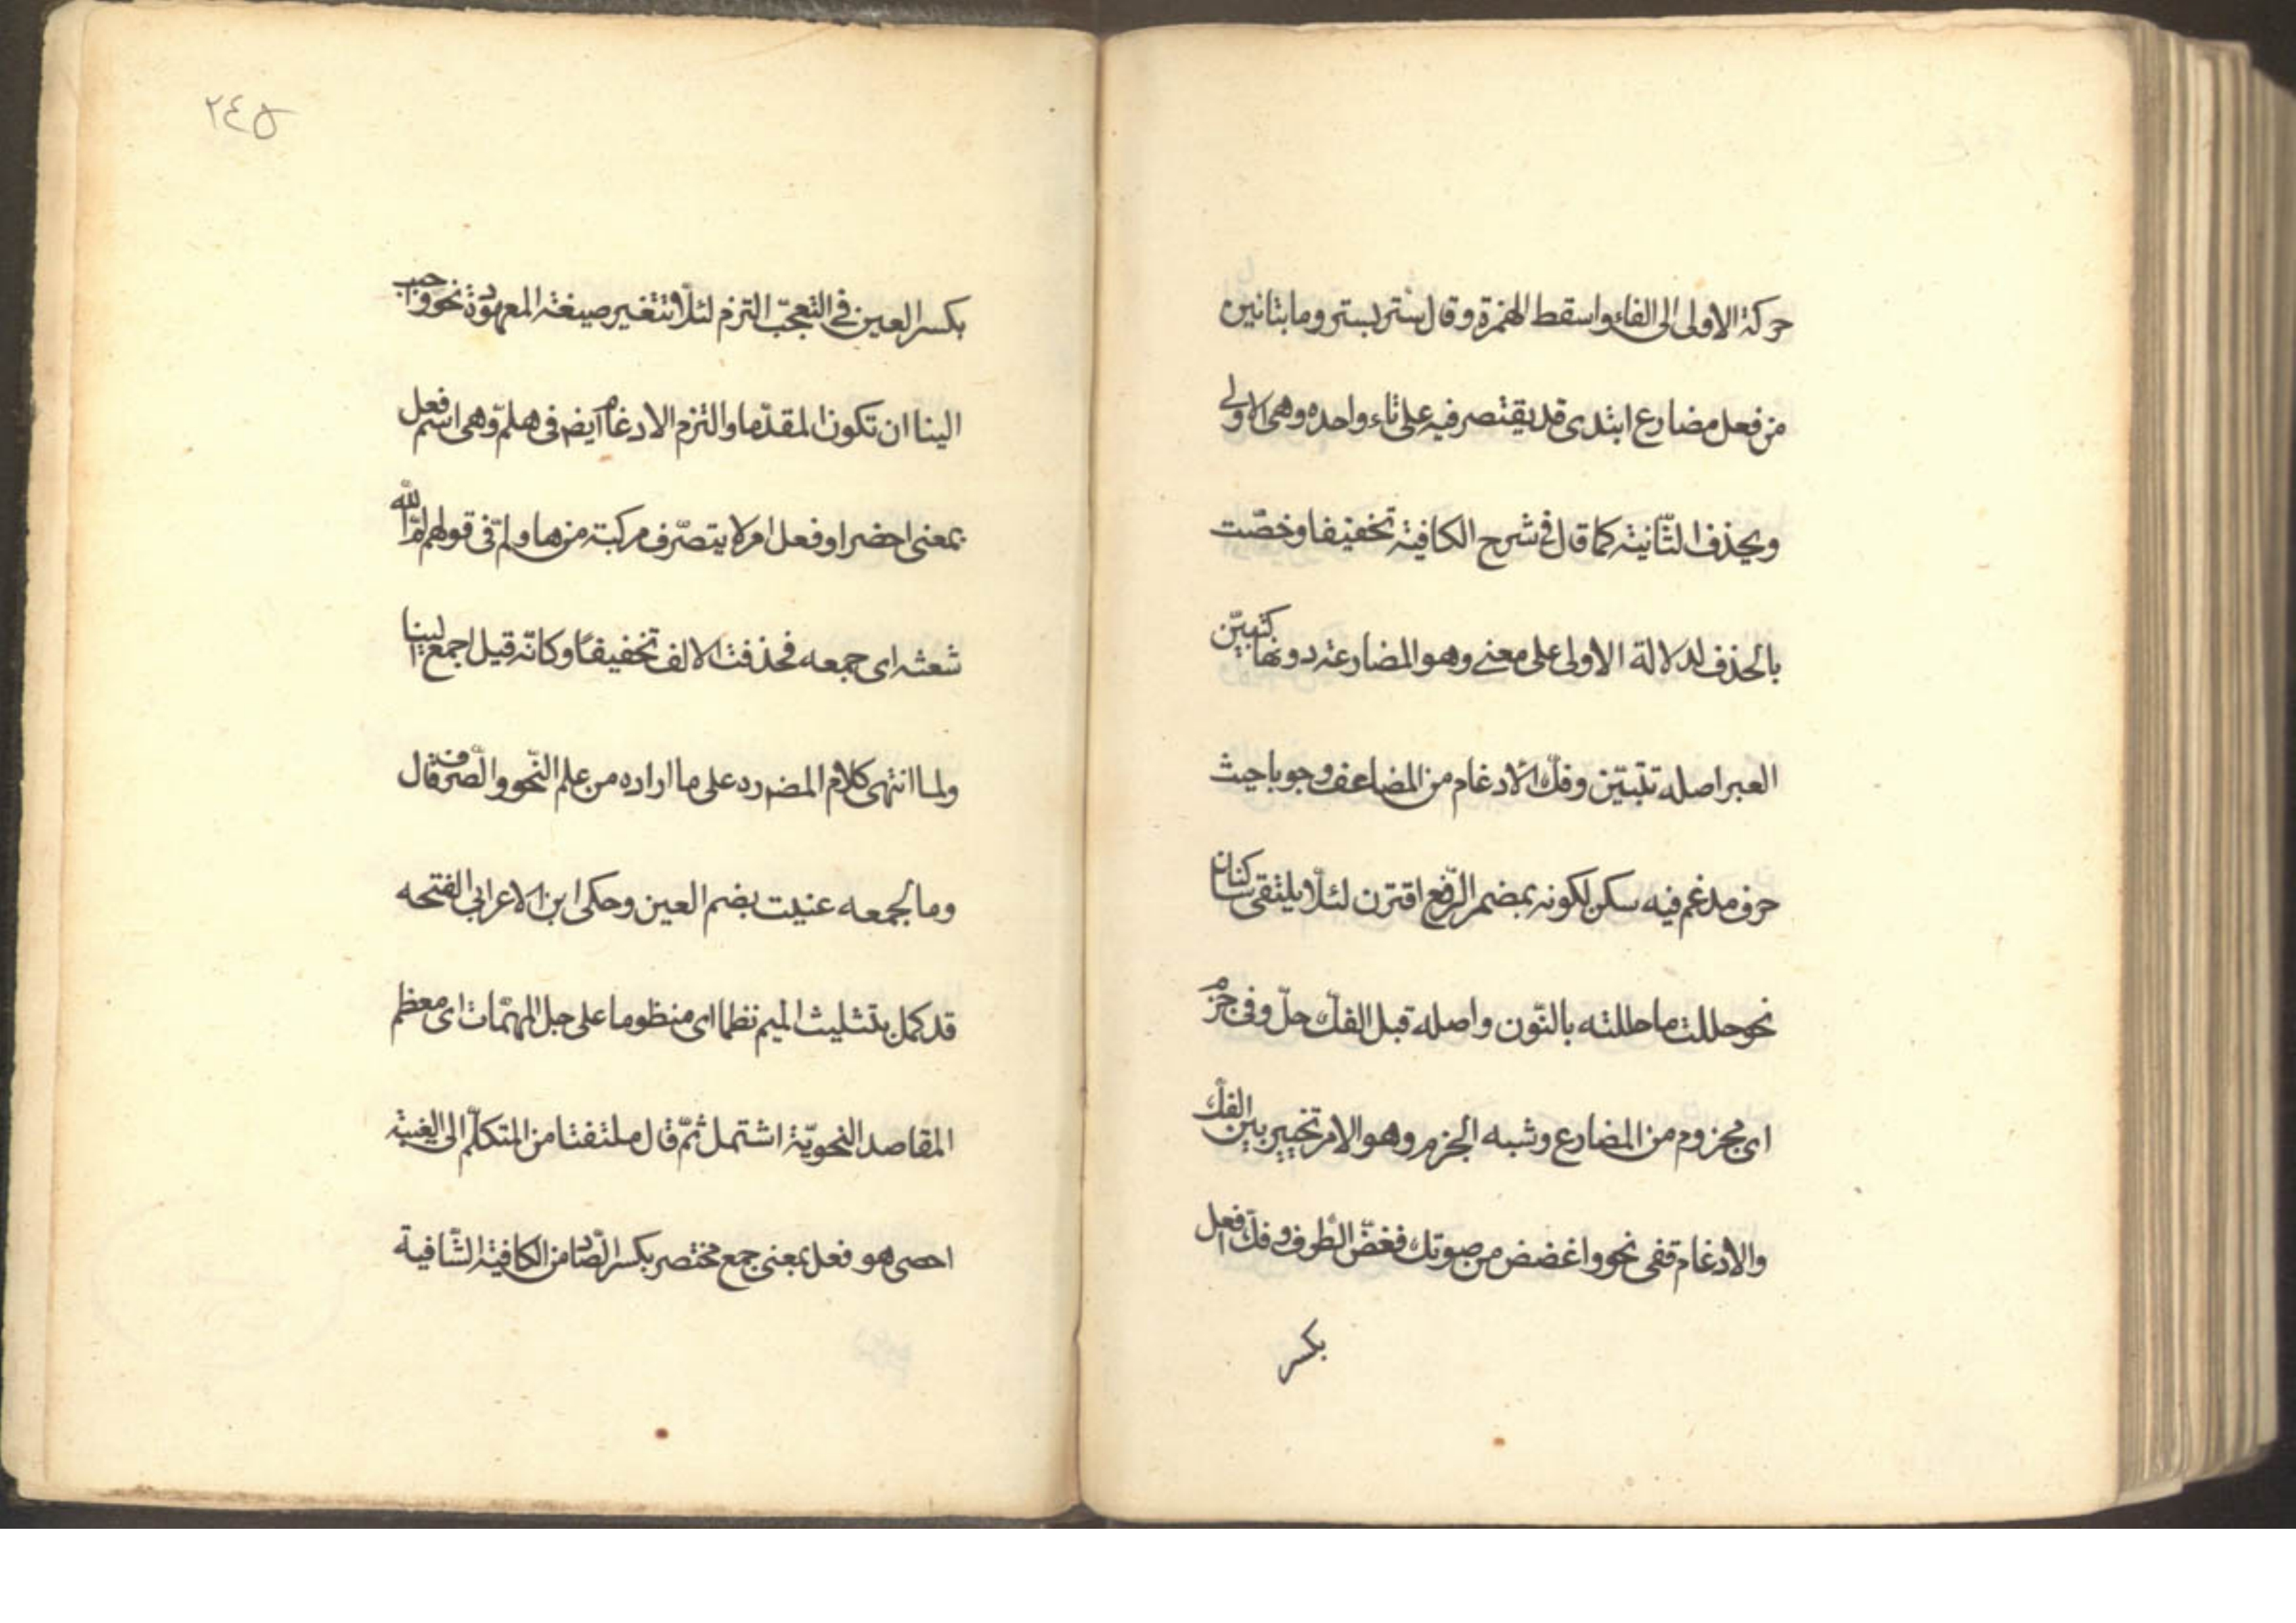 حركة الاولى الى الفاء واسقط الهمزة وقال ستر يستر وما بتائين
من فعل مضارع ابتدى قد يقتصر فيه على تاء واحده وهى الاولى
ويحذف الثّانية كما قال فى شرح الكافية تخفيفا وخصّت
بالحذف لدلالة الاولى على معنى وهو المضارعة دونها كتبيّن
العبر اصله تتبيّن وفكّ الادغام من المضاعف وجوبا حيث
حرف مدغم فيه سكن لكونه بمضمر الرّفع اقترن لئلّا يلتقى ساكنان
نحو حللت ما حللته بالنّون واصله قبل الفكّ حلّ وفى جزم
اى مجزوم من المضارع وشبه الجزم وهو الامر تخيير بين الفكّ
والادغام قفى نحو واغضض من صوتك فغضّ الطّرف وفكّ افعل
بكسر
٢٤٥
بكسر العين فى التعجّب التزم لئلّا تتغير صيغته المعهودة نحو واحبب
الينا ان تكون المقدّما والتزم الادغام ايض فى هلمّ وهى اسم فعل
بمعنى احضر او فعل امر لا يتصرّف مركبة من ها ولمّ فى قولهم لمّ الله
شعثه اى جمعه فحذفت الالف تخفيفًا وكانّه قيل اجمع الينا
ولما انتهى كلام المض ره على ما اراده من علم النّحو والصّرف قال
وما لجمعه عنيت بضم العين وحكى ابن الاعرابى الفتحه
قد كمل بتثليث الميم نظما اى منظوما على جل المهمّات اى معظم
المقاصد النحويّة اشتمل ثمّ قال ملتفتا من المتكلّم الى الغيبة
احصى هو فعل بمعنى جمع مختصر بكسر الصّاد من الكافية الشّافية